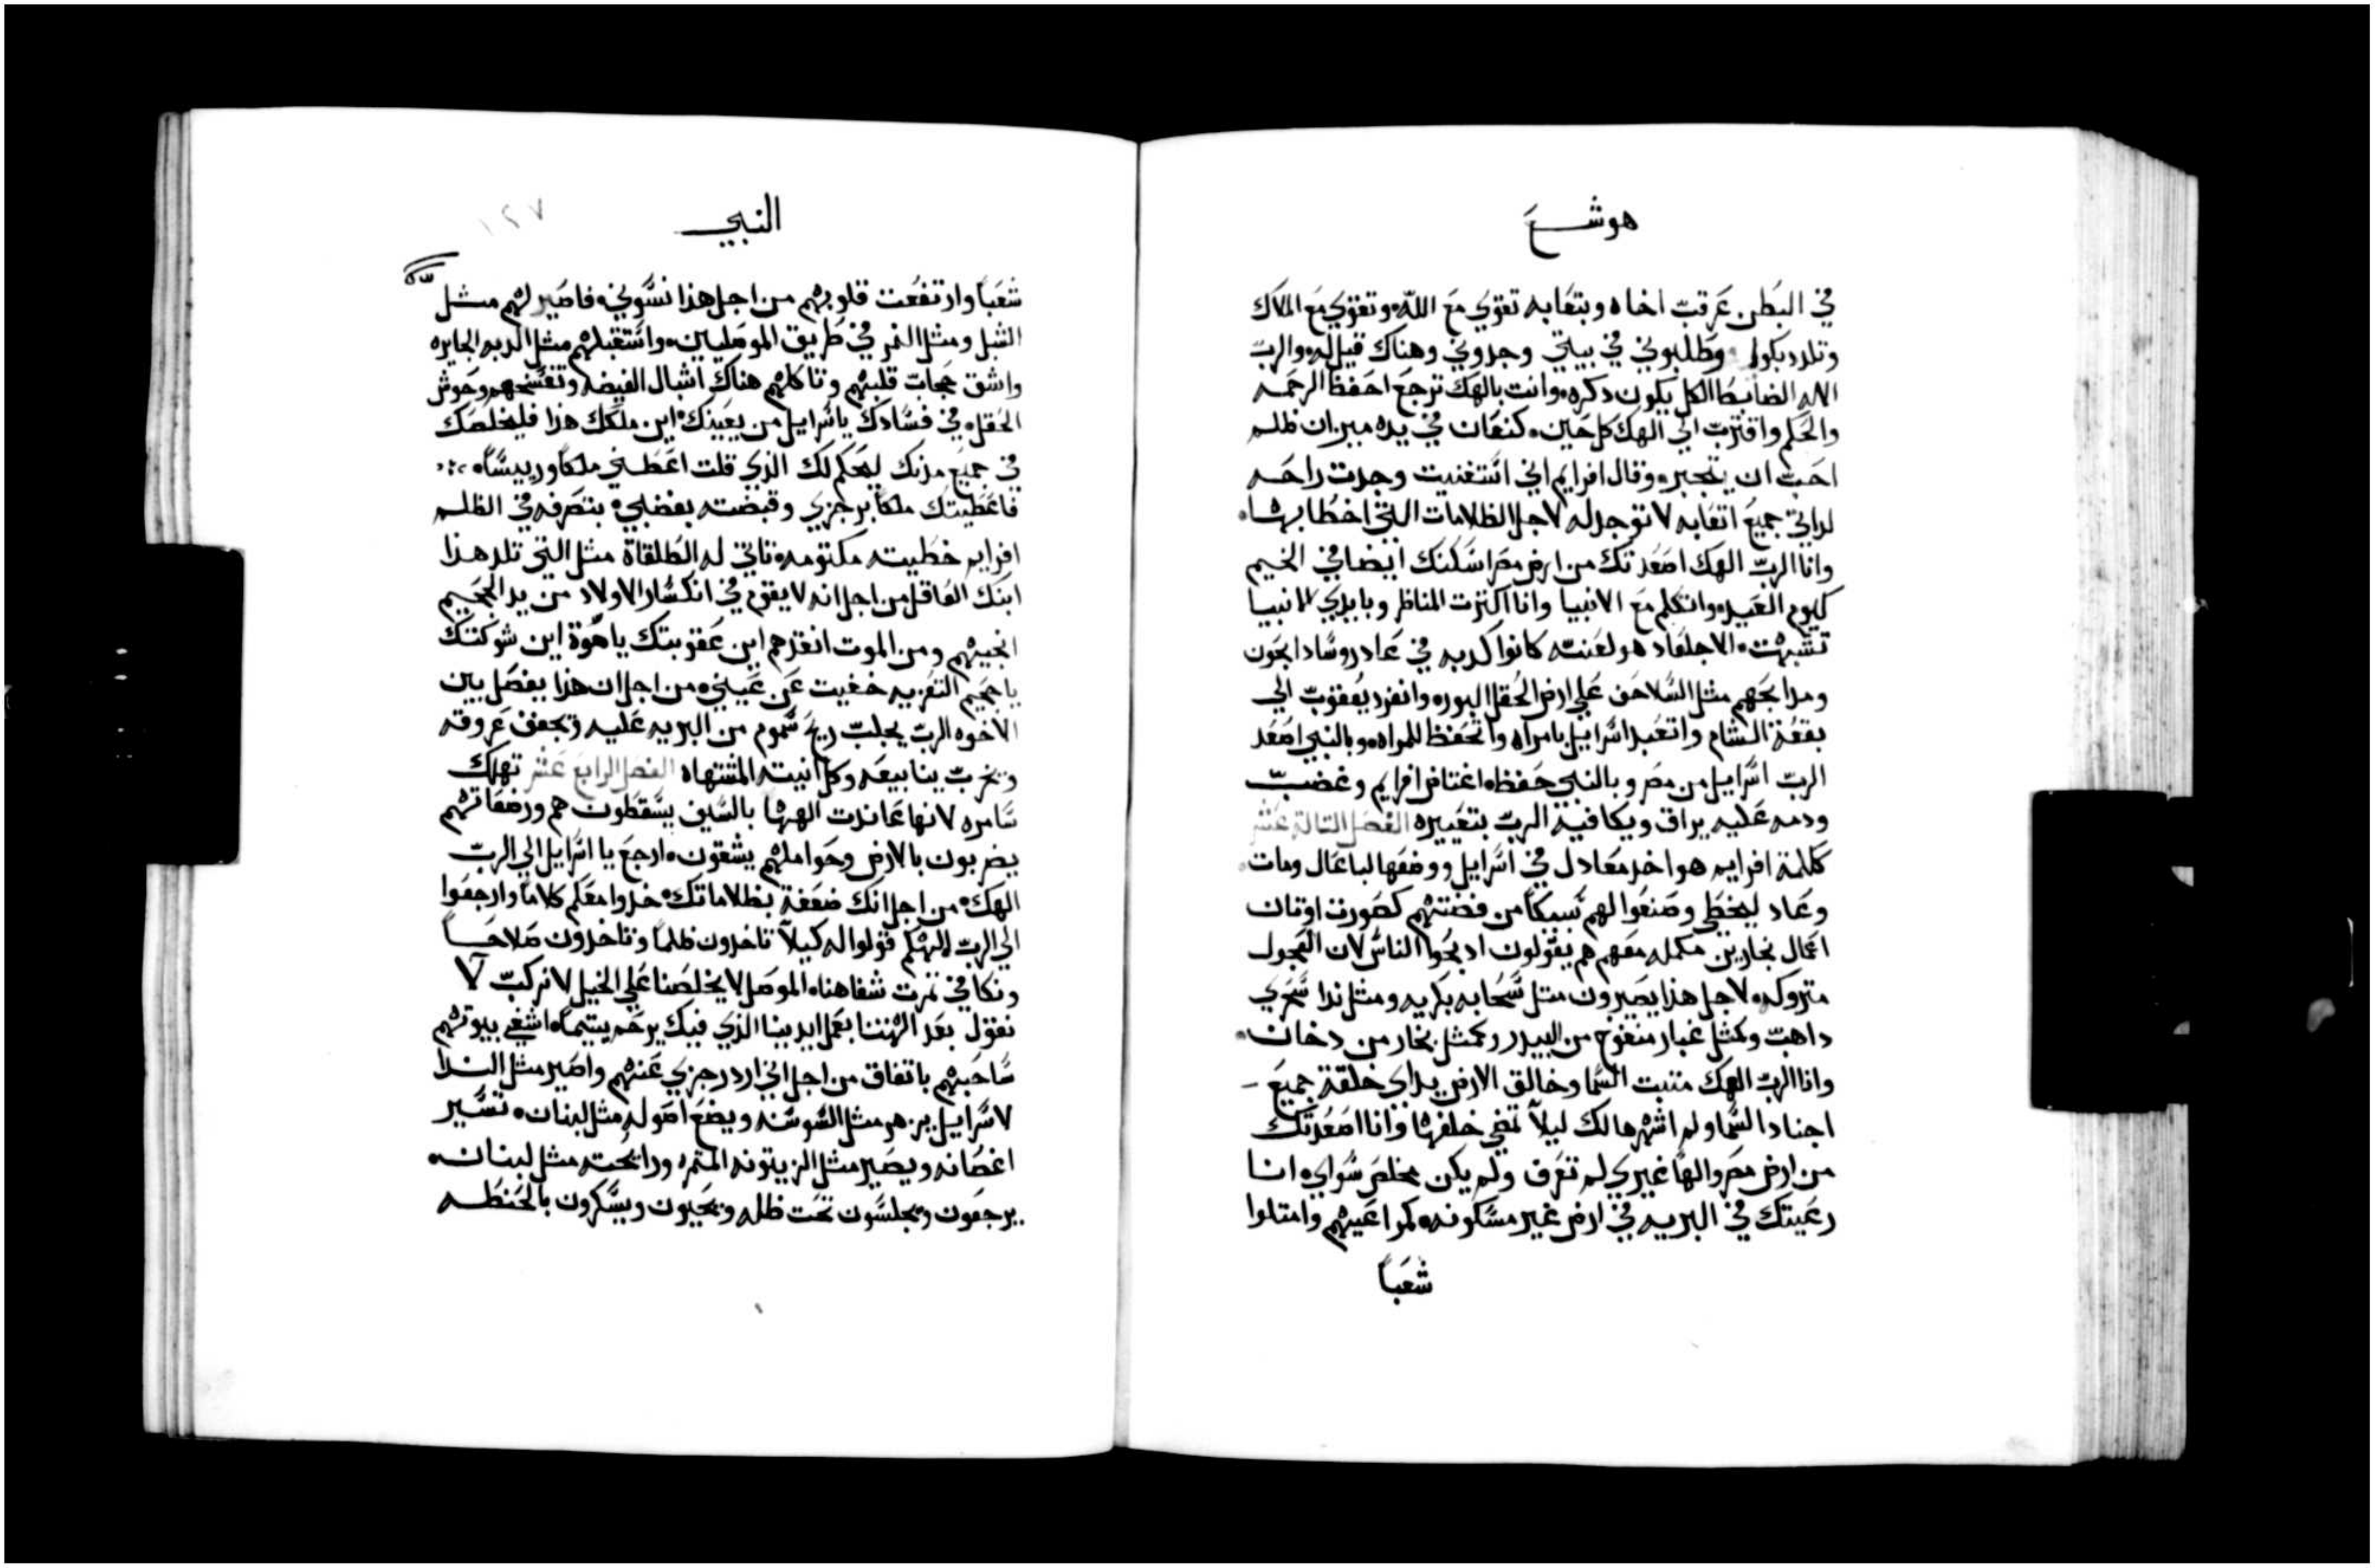 هوشع
في البطن عرقب اخاه وبتعابه تقوي مع الله وتقوي مع الملاك
وتلدد بكوا وطلبوني في بيتي وجدوني وهناك قيل له والرب
الاله الضابط الكل يكون دكره وانت بالهك ترجع احفظ الرحمه
والحكم واقترب الي الهك كل حين كنعان في يده ميزان ظلم
احب ان يتجبر وقال افرايم اني استغنيت وجدت راحه
لداتي جميع اتعابه لا توجد له لاجل الظلامات التي اخطا بها
وانا الرب الهك اصعدتك من ارض مصر اسكنك ايضا في الخيم
كيوم العيد واتكلم مع الانبيا وانا اكثرت المناظر وبايدي الانبيا
تشبهت الاجلعاد هو لعنته كانوا كدبه في عاد روسا دابحون
ومدابحهم مثل السلاحف علي ارض الحقل البوره وانفرد يعقوب الي
بقعة الشام واتعبد اسرايل بامراه واتحفظ للمراه وبالنبي اصعد
الرب اسرايل من مصر وبالنبي حفظه اغتاض افرايم وغضب
ودمه عليه يراق ويكافيه الرب بتعييره الفصل التالت عشر
كلمة افرايم هو اخد معادل في اسرايل ووضعها لباعال ومات
وعاد ليخطي وصنعوا لهم سبيكا من فضتهم كصورت اوتان
اعمال نجارين مكمله معهم هم يقولون ادبحوا الناس لان العجول
متروكه لاجل هذا يصيرون متل سحابه بكريه ومثل ندا سحري
داهب وكمثل غبار منفوخ من البيدر وكمثل بخار من دخان
وانا الرب الهك متبت السما وخالق الارض يداي خلقة جميع
اجناد السما ولم اشهرها لك ليلا تمضي خلفها وانا اصعدتك
من ارض مصر والها غيري لم تعرف ولم يكن مخلص سواي انا
رعيتك في البريه في ارض غير مسكونه كمراعيهم وامتلوا
شعبا
النبي
١٢٧
شعبا وارتفعت قلوبهم من اجل هذا نسوني فاصير لهم مثل
الشبل ومثل النمر في طريق الموصليين واستقبلهم مثل الدبه الجايره
واشق حجاب قلبهم وتاكلهم هناك اشبال الغيضه وتفسخهم وحوش
الحقل في فسادك ياسرايل من يعينك اين ملكك هذا فليخلصك
في جميع مدنك ليحكم لك الذي قلت اعطني ملكا ورييسا
فاعطيتك ملكا برجزي وقبضته بغضبي بتصرفه في الظلم
افرايم خطيته مكتومه تاتي له الطلقاة مثل التي تلد هذا
ابنك العاقل من اجل انه لا يقوم في انكسار الاولاد من يد الجحيم
انجيهم ومن الموت انقذهم اين عقوبتك ياهوة اين شوكتك
ياجحيم التعزيه خفيت عن عيني من اجل ان هذا يفصل بين
الاخوه الرب يجلب ريح سموم من البريه عليه وتجفف عروقه
وتخرب ينابيعه وكل انيته المشتهاه الفصل الرابع عشر تهلك
سامره لانها عاندت الهها بالسيف يسقطون هم ورضعاتهم
يضربون بالارض وحواملهم يشقون ارجع يا اسرايل الي الرب
الهك من اجل انك ضعفة بظلاماتك خدوا معكم كلاما وارجعوا
الي الرب الهكم قولوا له كيلا تاخدون ظلما وتاخدون صلاحا
ونكافي تمرت شفاهنا الموصل لا يخلصنا علي الخيل لا نركب لا
نقول بعد الهتنا بعمل ايدينا الذي فيك يرحم يتيما اشفي بيوتهم
ساحبهم باتفاق من اجل اني ارد رجزي عنهم واصير مثل الندا
لاسرايل يزهر مثل السوسنه ويضع اصوله مثل لبنان تسير
اغصانه ويصير مثل الزيتونه المتمره ورائحته مثل لبنان
يرجعون ويجلسون تحت ظله ويحيون ويسكرون بالحنطه